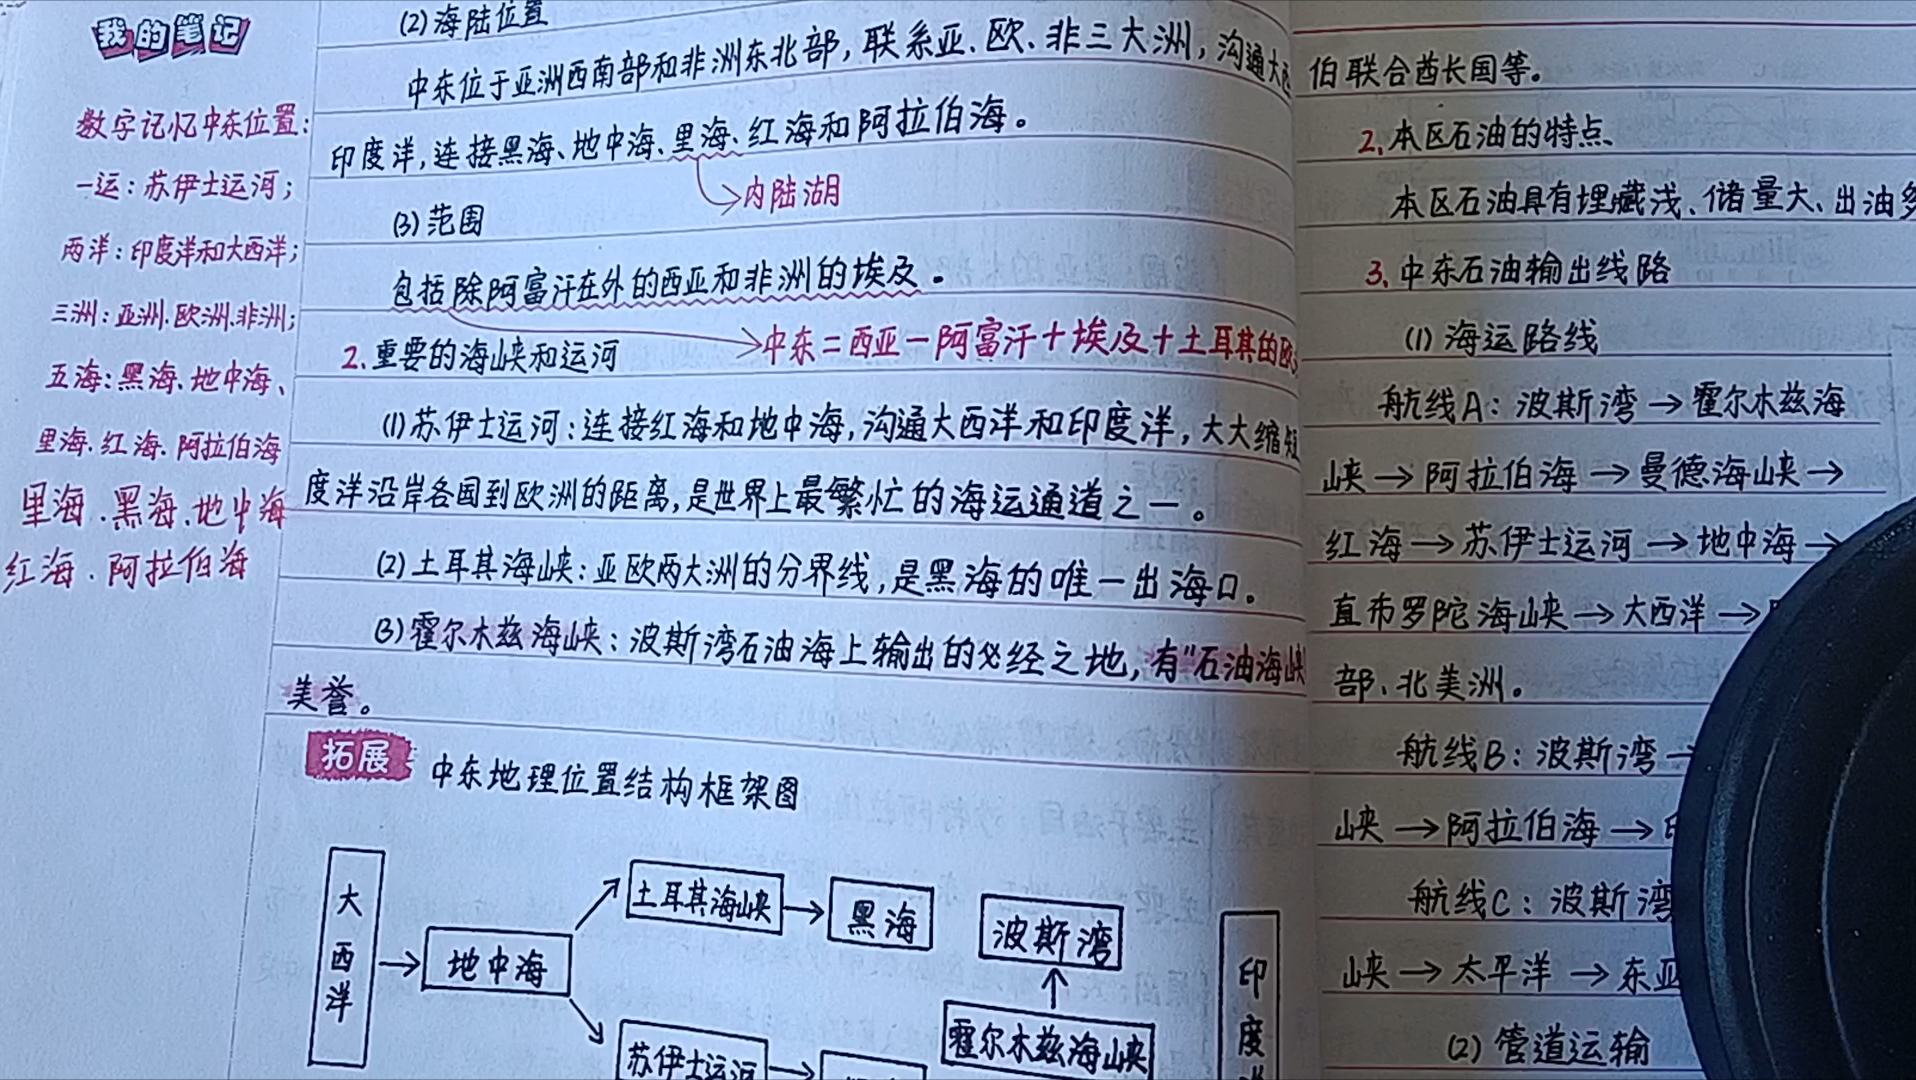 我的笔记
数字记忆中东位置:
一运:苏伊士运河;
两洋:印度洋和大西洋;
三洲:亚洲、欧洲、非洲;
五海:黑海、地中海、
里海、红海、阿拉伯海
里海、黑海、地中海
红海、阿拉伯海
(2)海陆位置
中东位于亚洲西南部和非洲东北部,联系亚、欧、非三大洲,沟通大西
印度洋,连接黑海、地中海、里海、红海和阿拉伯海。
内陆湖
(3)范围
包括除阿富汗在外的西亚和非洲的埃及。
中东=西亚-阿富汗+埃及+土耳其的欧
2.重要的海峡和运河
(1)苏伊士运河:连接红海和地中海,沟通大西洋和印度洋,大大缩短
度洋沿岸各国到欧洲的距离,是世界上最繁忙的海运通道之一。
(2)土耳其海峡:亚欧两大洲的分界线,是黑海的唯一出海口。
(3)霍尔木兹海峡:波斯湾石油海上输出的必经之地,有"石油海峡
美誉。
拓展 中东地理位置结构框架图
大西洋
→
地中海
土耳其海峡→黑海
苏伊士运河→
波斯湾
↑
霍尔木兹海峡
印度
伯联合酋长国等。
2.本区石油的特点
本区石油具有埋藏浅、储量大、出油多
3.中东石油输出线路
(1)海运路线
航线A:波斯湾→霍尔木兹海
峡→阿拉伯海→曼德海峡→
红海→苏伊士运河→地中海→
直布罗陀海峡→大西洋→
部、北美洲。
航线B:波斯湾→
峡→阿拉伯海→
航线C:波斯湾
峡→太平洋→东亚
(2)管道运输